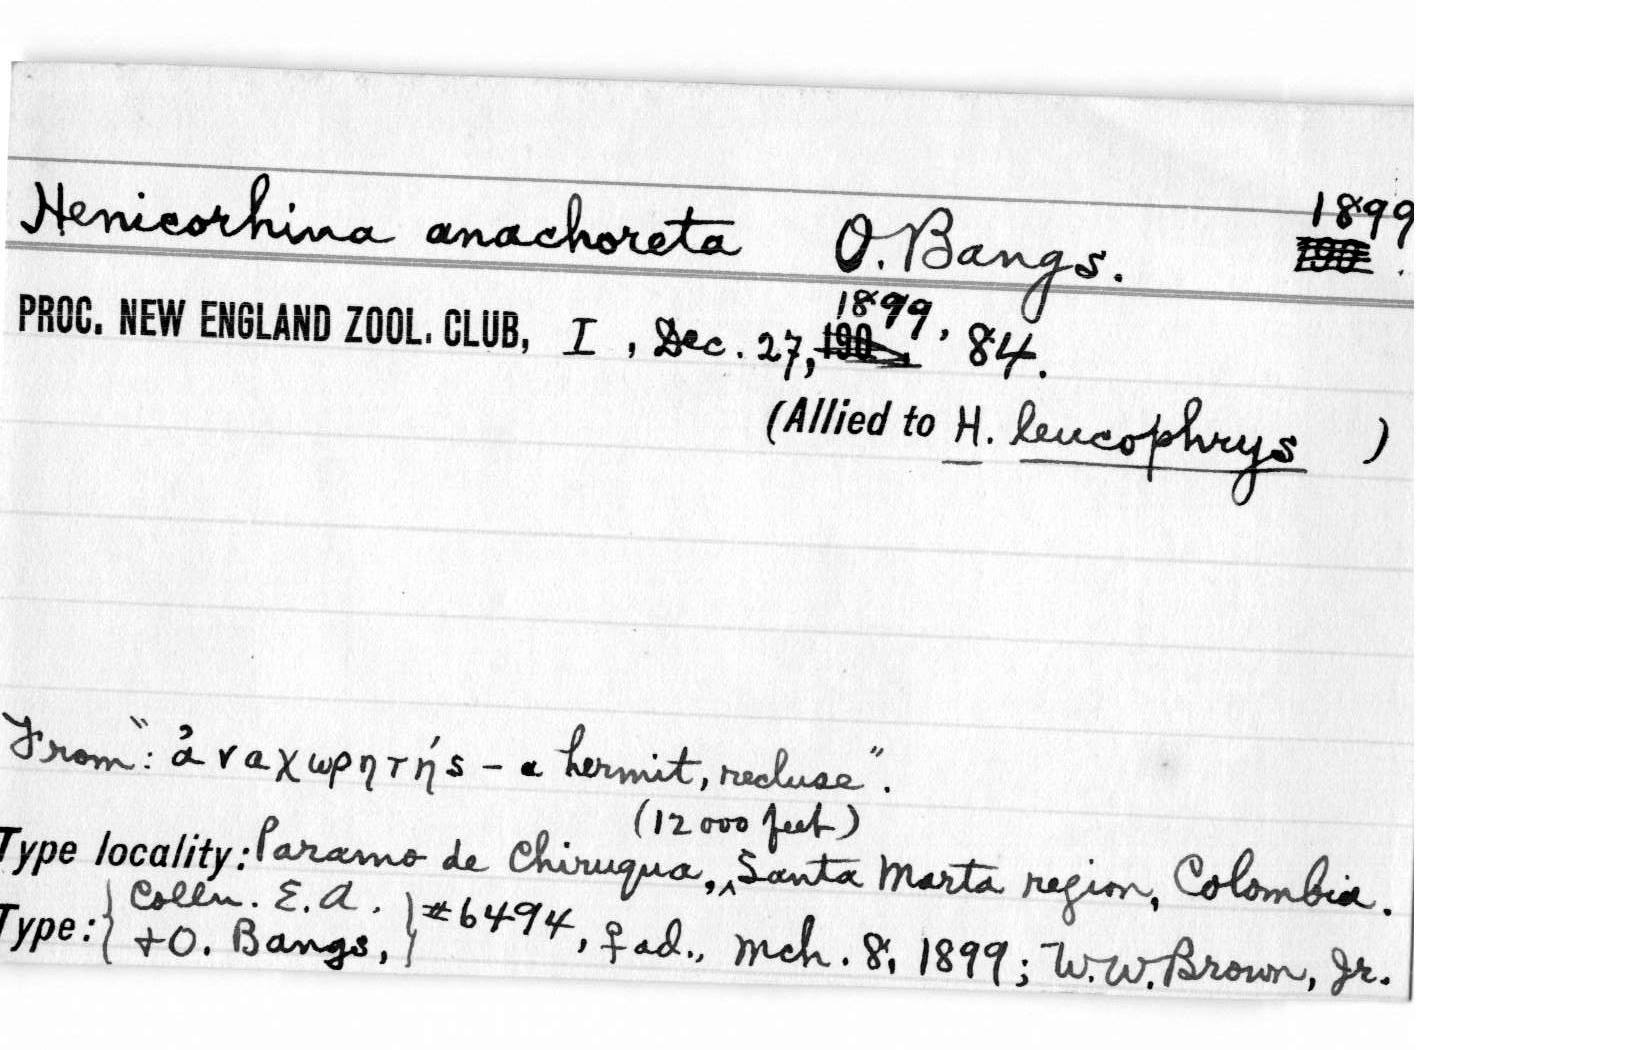 Henicorhina anachoreta O. Bangs. 1899
190 .
PROC. NEW ENGLAND ZOOL. CLUB, I, Dec. 27, 190 1899, 84.
(Allied to H. leucophrys )
From": ἀναχωρητής – a hermit, recluse".
(12000 feet)
Type locality: Paramo de Chiruqua, ‸ Santa Marta region, Colombia.
Type: { Colln. E. A. & O. Bangs, } #6494, ♀ ad., Mch. 8, 1899; W. W. Brown, Jr.